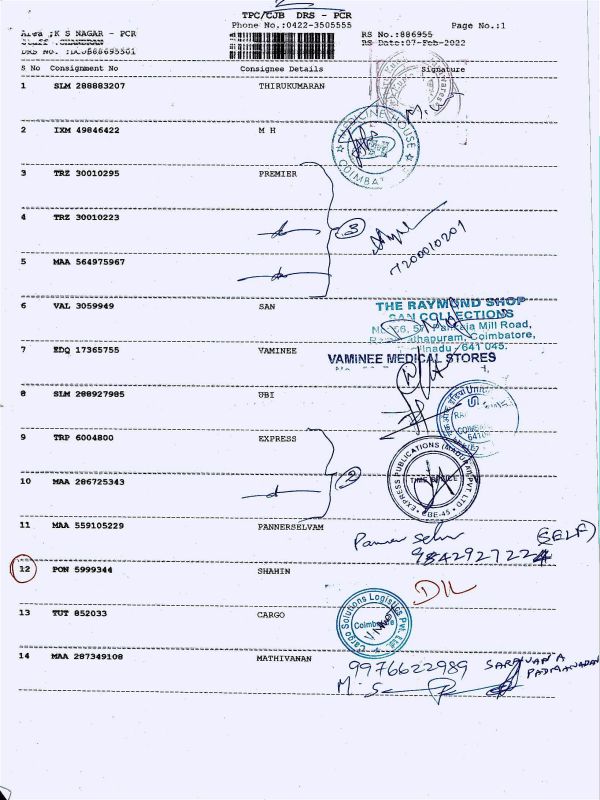 2
TPC/CJB DRS - PCR
Phone No.:0422-3505555 Page No.:1
Area ;K S NAGAR - PCR RS No.:886955
RS Date:07-Feb-2022
S No Consignment No Consignee Details Signature
1 SLM 288883207 THIRUKUMARAN
2 IXM 49846422 M H
HOUSE
COIMBAT
3 TRZ 30010295 PREMIER
4 TRZ 30010223 3
7200010201
5 MAA 564975967
6 VAL 3059949 SAN
THE RAYMOND SHOP
SAN COLLECTIONS
Mill Road,
Coimbatore,
641 045.
7 EDQ 17365755 VAMINEE
VAMINEE MEDICAL STORES
8 SLM 288927985 UBI
9 TRP 6004800 EXPRESS
EXPRESS PUBLICATIONS (MADURAI) PVT LTD
CBE-45
10 MAA 286725343 2
11 MAA 559105229 PANNERSELVAM
Panner Selvam (SELF)
9842927224
12 PON 5999344 SHAHIN
DIL
13 TUT 852033 CARGO
Cargo Solutions Logistics Pvt. Ltd
Coimbatore
14 MAA 287349108 MATHIVANAN
9976622989 SARAVANA
PADMANABAN